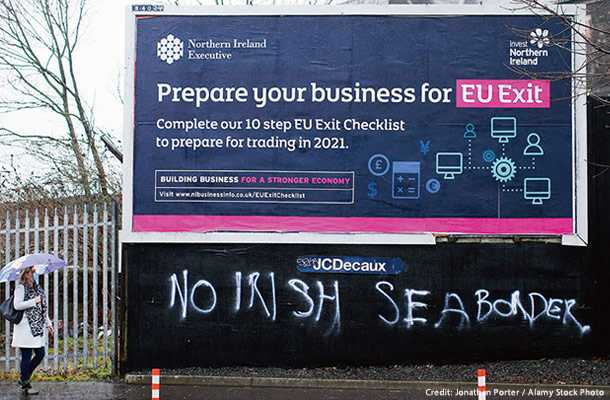 Northern Ireland
Executive
Invest
Northern
Ireland
Prepare your business for EU Exit
Complete our 10 step EU Exit Checklist
to prepare for trading in 2021.
BUILDING BUSINESS FOR A STRONGER ECONOMY
Visit www.nibusinessinfo.co.uk/EUExitChecklist
JCDecaux
NO IRISH SEA BORDER
Credit: Jonathan Porter / Alamy Stock Photo